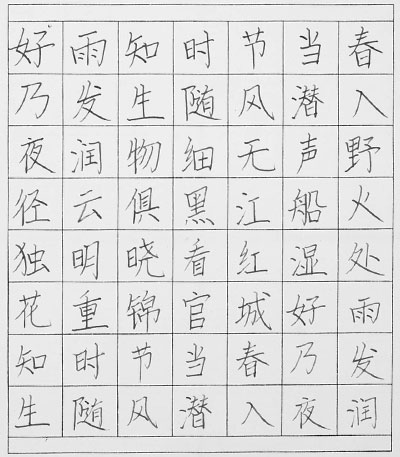 好雨知时节当春
乃发生随风潜入
夜润物细无声野
径云俱黑江船火
独明晓看红湿处
花重锦官城好雨
知时节当春乃发
生随风潜入夜润